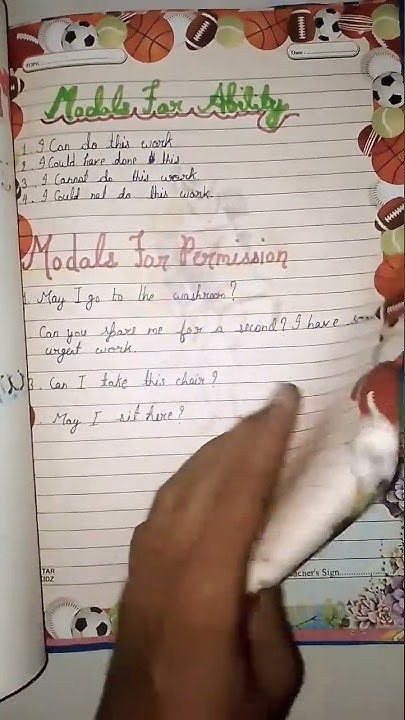 TOPIC
Date:
Modals For Ability
1. I Can do this work
2. I Could have done this.
3. I Cannot do this work.
4. I Could not do this work.
Modals For Permission
1. May I go to the washroom?
Can you spare me for a second? I have
urgent work.
3. Can I take this chair?
May I sit here?
TAR
IDZ
acher's Sign